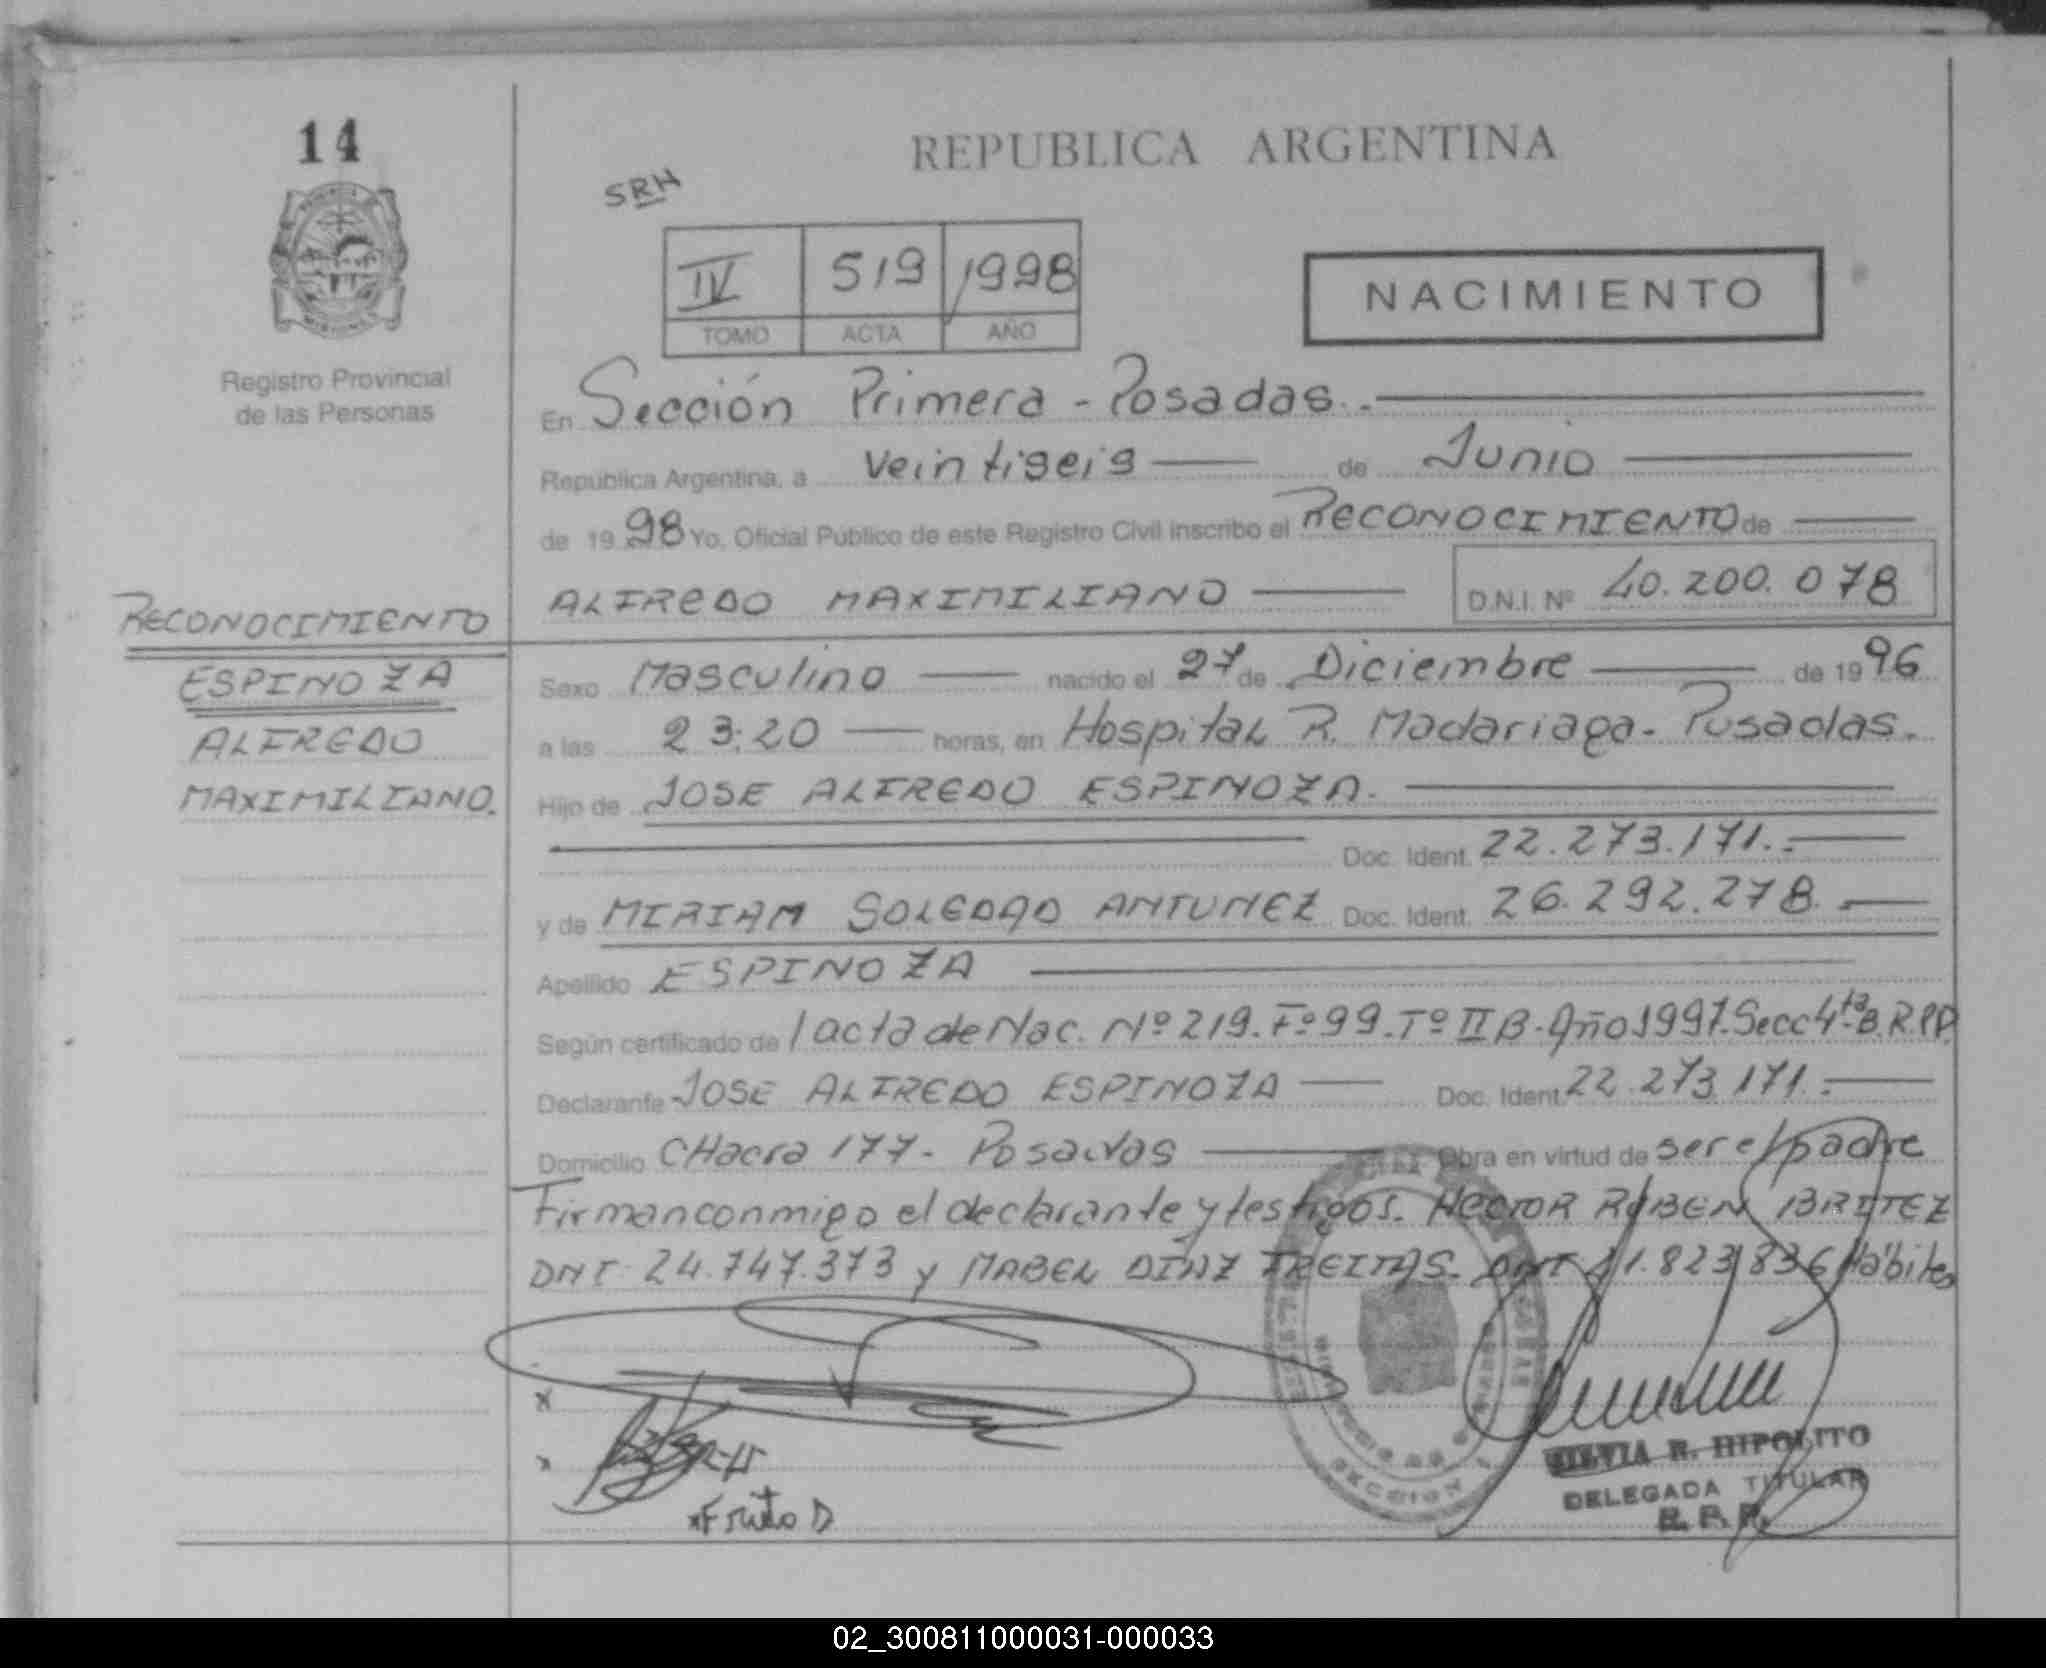 14
REPUBLICA ARGENTINA
SRH
IV 519 1998
TOMO ACTA AÑO
NACIMIENTO
Registro Provincial
de las Personas
En Sección Primera - Posadas.
República Argentina, a Veintiseis de Junio
de 1998 Yo, Oficial Público de este Registro Civil inscribo el RECONOCIMIENTO de
ALFREDO MAXIMILIANO D.N.I. Nº 40.200.078
RECONOCIMIENTO
ESPINOZA
ALFREDO
MAXIMILIANO.
Sexo Masculino nacido el 27 de Diciembre de 1996
a las 23:20 horas, en Hospital R. Madariaga - Posadas.
Hijo de JOSE ALFREDO ESPINOZA.
Doc. Ident. 22.273.171.
y de MIRIAM SOLEDAD ANTUNEZ Doc. Ident. 26.292.278.
Apellido ESPINOZA
Según certificado de 1 acta de Nac. Nº 219. Fº 99. Tº II B. Año 1997. Secc 4ta B. R.P.P.
Declarante JOSE ALFREDO ESPINOZA Doc. Ident. 22.273.171.
Domicilio CHacra 177 - Posadas Obra en virtud de ser el padre
Firman conmigo el declarante y testigos. HECTOR RUBEN BRITEZ
DNI 24.747.373 y MABEL DIAZ FREITAS. DNI 11.823.836 Hábiles
SILVIA R. HIPOLITO
DELEGADA TITULAR
R. P. P.
02_300811000031-000033